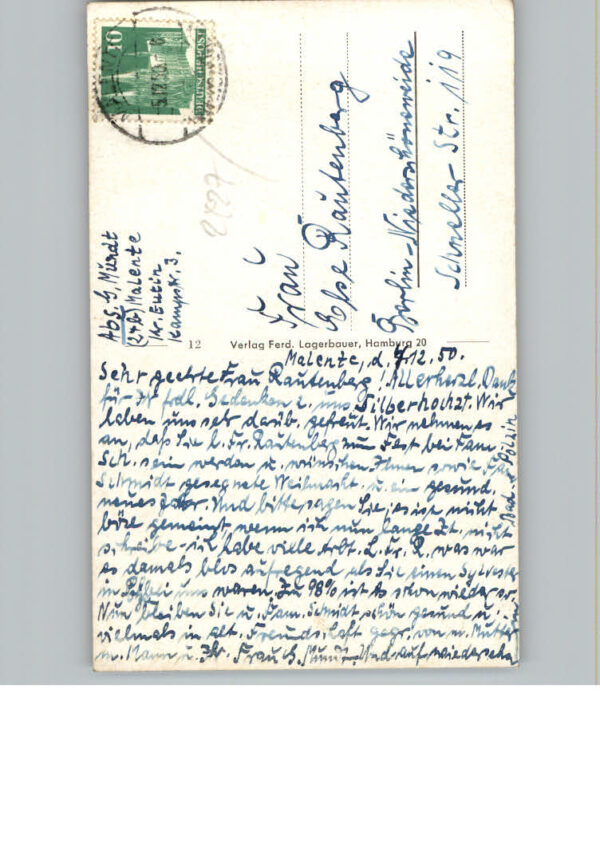 10
DEUTSCHE POST
2427
Abs. G. Mundt
(24b) Malente
Kr. Eutin
Kampstr. 3.
Frau
Else Rautenberg
Berlin-Niederschöneweide
Schneller Str. 119
12 Verlag Ferd. Lagerbauer, Hamburg 20
Malente, d. 4.12.50.
Sehr geehrte Frau Rautenberg! Allerherzl. Dank
für Ihr frdl. Gedenken z. uns. Silberhochzt. Wir
haben uns sehr darüb. gefreut. Wir nehmen es
an, daß Sie l. Fr. Rautenberg zum Fest bei Fam.
Sch. sein werden u. wünschen Ihnen sowie Fam.
Schmidt gesegnete Weihnacht. u. ein gesund.
neues Jahr. Und bitte sagen Sie, es ist nicht
böse gemeint, wenn ich nun lange Zt. nicht
schreibe - ich habe viele Arbt. L. Fr. R. was war
es damals blos aufregend als Sie einen Sylvester
in bei uns waren. Zu 98% ist es schon wieder so.
Nun bleiben Sie u. Fam. Schmidt schön gesund u.
vielmals in alt. Freundschaft gegr. von m. Mutter
m. Mann u. Ihr. Frau G. Mundt. Und auf wiedersehn
Bad Polzin